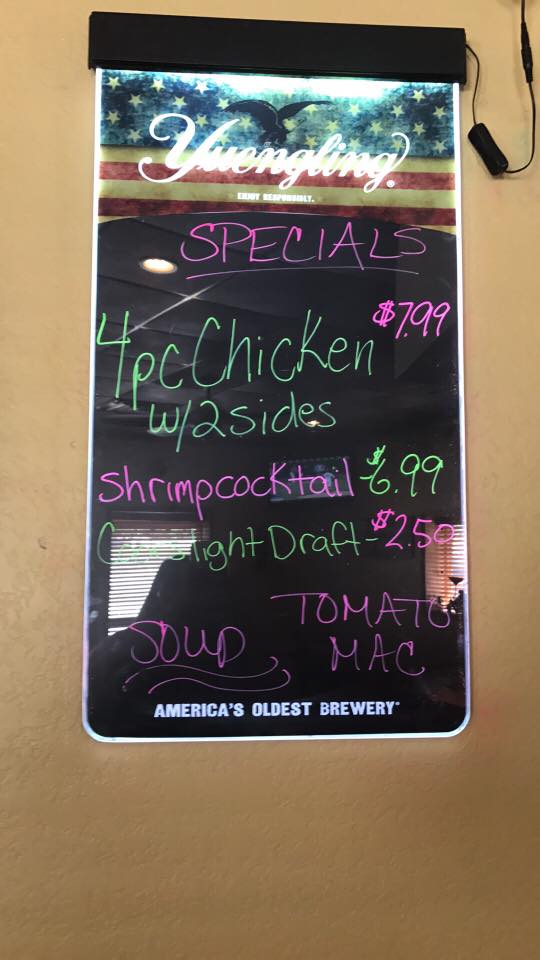 Yuengling®
ENJOY RESPONSIBLY.
SPECIALS
$7.99
4pc Chicken
w/2 sides
shrimpcocktail - $6.99
Coorslight Draft - $2.50
SOUP TOMATO
MAC
AMERICA'S OLDEST BREWERY®